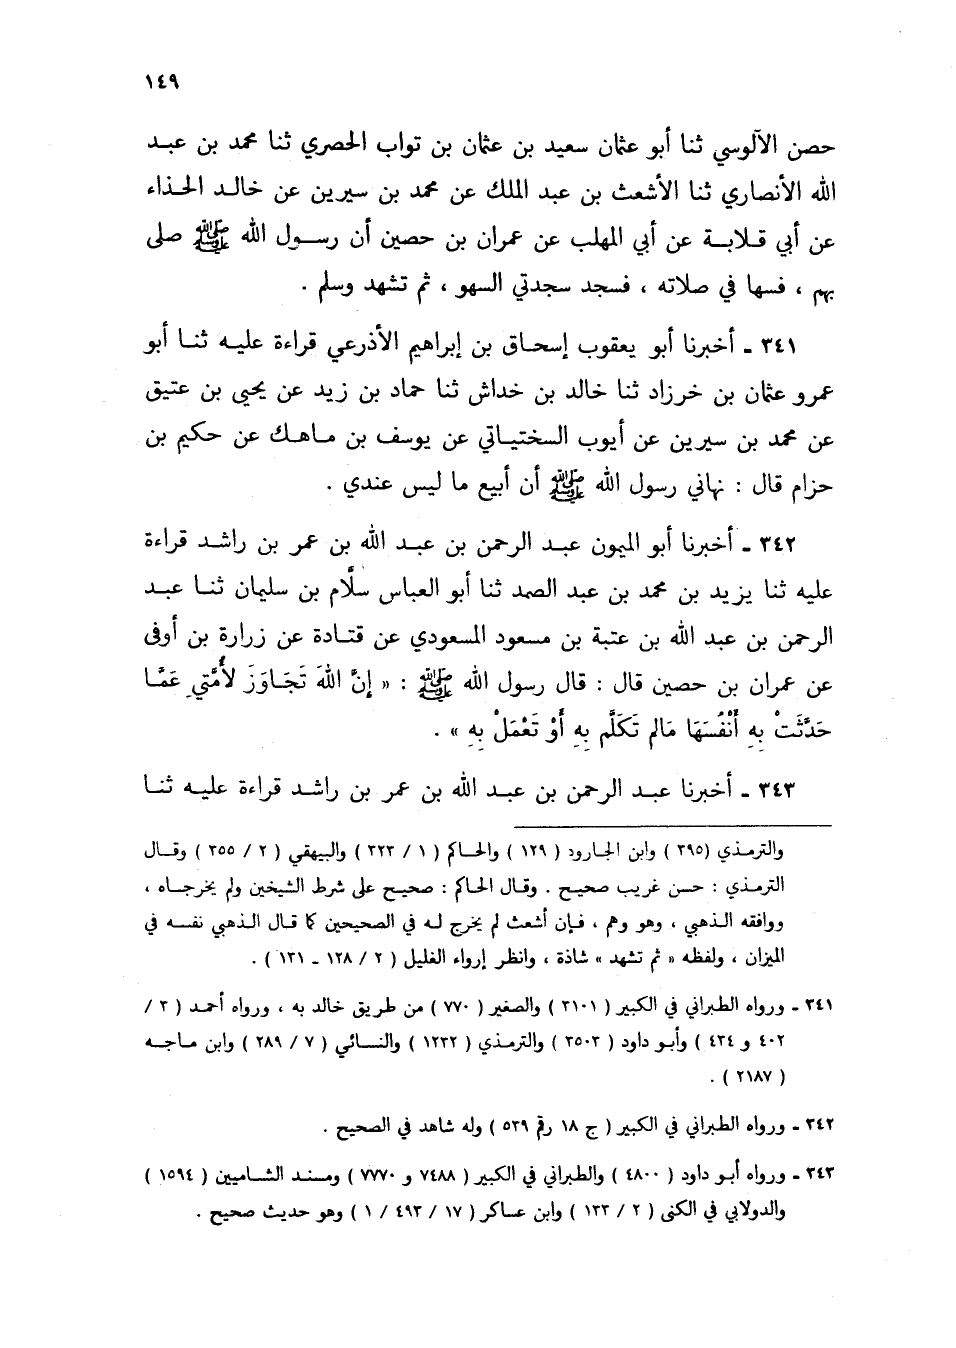 ١٤٩
حصن الآلوسي ثنا أبو عثمان سعيد بن عثمان بن تواب الحصري ثنا محمد بن عبد
الله الأنصاري ثنا الأشعث بن عبد الملك عن محمد بن سيرين عن خالد الحذاء
عن أبي قلابة عن أبي المهلب عن عمران بن حصين أن رسول الله ﷺ صلى
بهم ، فسها في صلاته ، فسجد سجدتي السهو ، ثم تشهد وسلم .
٣٤١ ـ أخبرنا أبو يعقوب إسحاق بن إبراهيم الأذرعي قراءة عليه ثنا أبو
عمرو عثمان بن خرزاد ثنا خالد بن خداش ثنا حماد بن زيد عن يحيى بن عتيق
عن محمد بن سيرين عن أيوب السختياتي عن يوسف بن ماهك عن حكيم بن
حزام قال : نهاني رسول الله ﷺ أن أبيع ما ليس عندي .
٣٤٢ ـ أخبرنا أبو الميمون عبد الرحمن بن عبد الله بن عمر بن راشد قراءة
عليه ثنا يزيد بن محمد بن عبد الصمد ثنا أبو العباس سلَّام بن سليمان ثنا عبد
الرحمن بن عبد الله بن عتبة بن مسعود المسعودي عن قتادة عن زرارة بن أوفى
عن عمران بن حصين قال : قال رسول الله ﷺ : « إِنَّ اللهَ تَجَاوَزَ لأُمَّتِي عَمَّا
حَدَّثَتْ بِهِ أَنْفُسَهَا مَالم تَكَلَّم بِهِ أَوْ تَعْمَلْ بِهِ » .
٣٤٣ ـ أخبرنا عبد الرحمن بن عبد الله بن عمر بن راشد قراءة عليه ثنا
والترمذي (٣٩٥ ) وابن الجارود ( ١٢٩ ) والحاكم ( ١ / ٣٢٣ ) والبيهقي ( ٢ / ٣٥٥ ) وقال
الترمذي : حسن غريب صحيح . وقال الحاكم : صحيح على شرط الشيخين ولم يخرجاه ،
ووافقه الذهبي ، وهو وهم ، فإن أشعث لم يخرج له في الصحيحين كما قال الذهبي نفسه في
الميزان ، ولفظه « ثم تشهد » شاذة ، وانظر إرواء الغليل ( ٢ / ١٢٨ ـ ١٣١ ) .
٣٤١ ـ ورواه الطبراني في الكبير ( ٣١٠١ ) والصغير ( ٧٧٠ ) من طريق خالد به ، ورواه أحمد ( ٣ /
٤٠٢ و ٤٣٤ ) وأبو داود ( ٣٥٠٣ ) والترمذي ( ١٢٣٢ ) والنسائي ( ٧ / ٢٨٩ ) وابن ماجه
( ٢١٨٧ ) .
٣٤٢ ـ ورواه الطبراني في الكبير ( ج ١٨ رقم ٥٣٩ ) وله شاهد في الصحيح .
٣٤٣ ـ ورواه أبو داود ( ٤٨٠٠ ) والطبراني في الكبير ( ٧٤٨٨ و ٧٧٧٠ ) ومسند الشاميين ( ١٥٩٤ )
والدولابي في الكنى ( ٢ / ١٣٣ ) وابن عساكر ( ١٧ / ٤٩٣ / ١ ) وهو حديث صحيح .